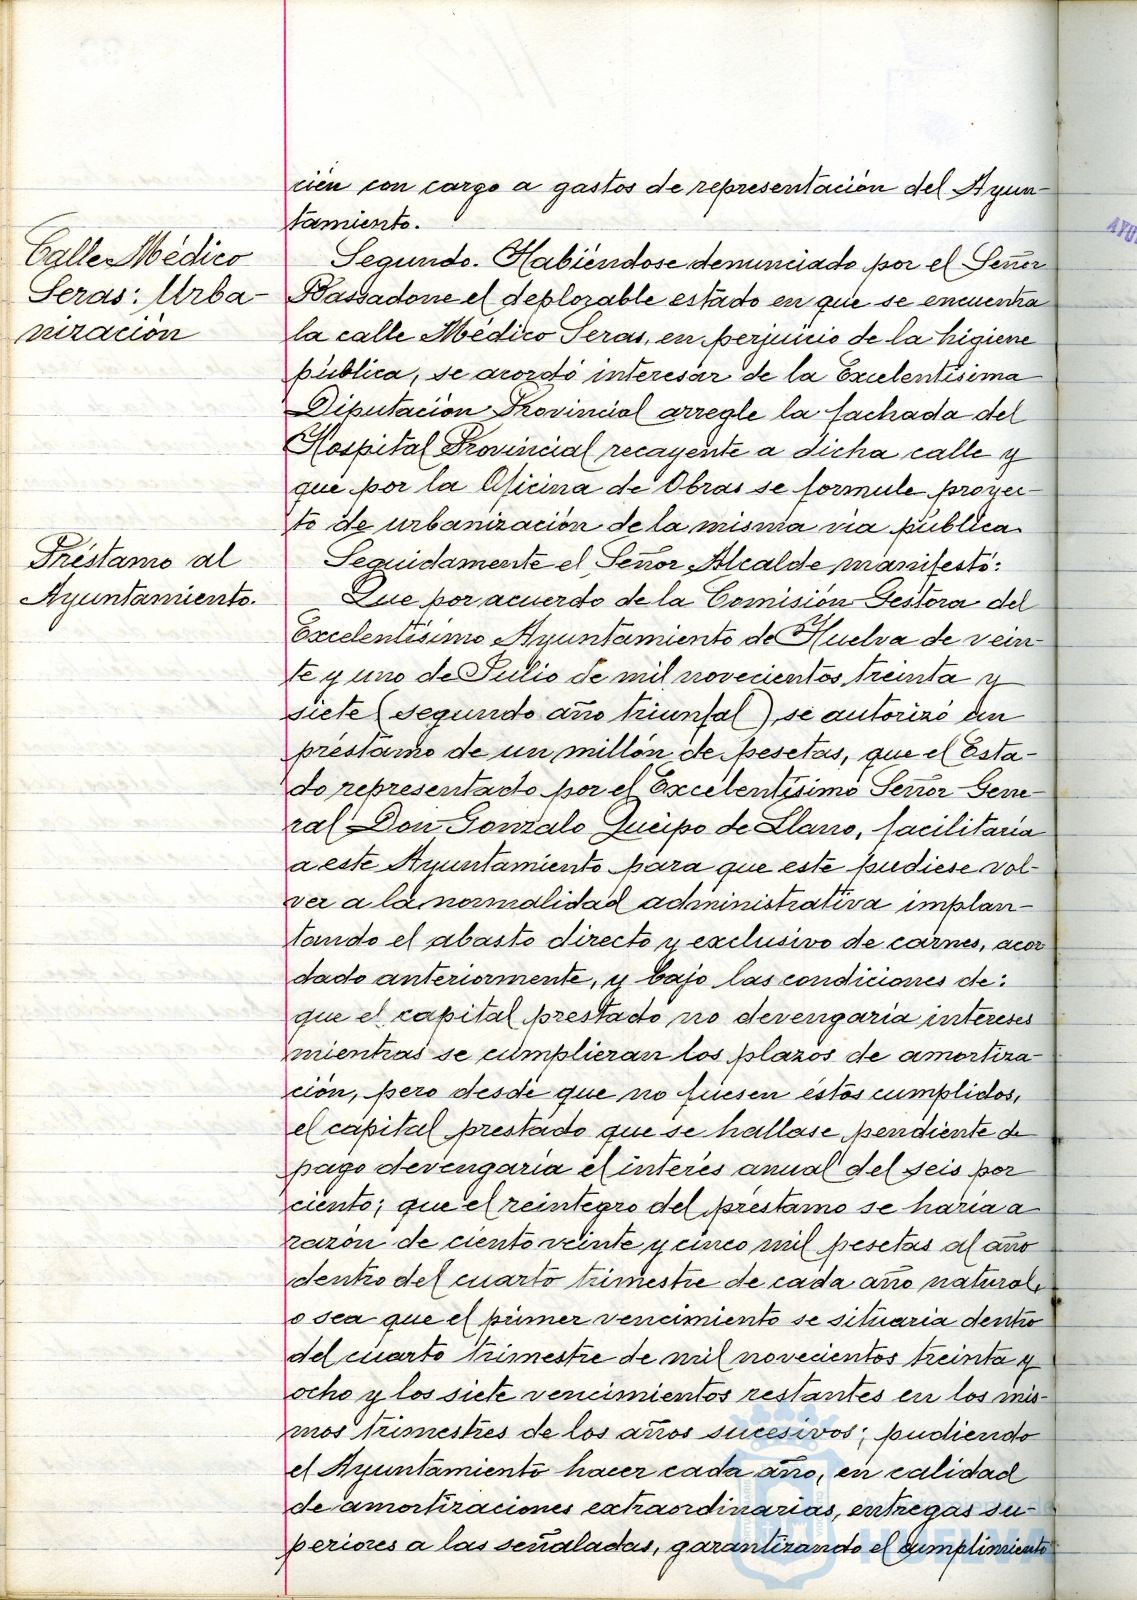 ción con cargo a gastos de representación del Ayun-
tamiento.
Calle Médico
Seras: Urba-
nización
Segundo. Habiéndose denunciado por el Señor
Bassadone el deplorable estado en que se encuentra
la calle Médico Seras, en perjuicio de la higiene
pública, se acordó interesar de la Excelentísima
Diputación Provincial arregle la fachada del
Hospital Provincial recayente a dicha calle y
que por la Oficina de Obras se formule proyec-
to de urbanización de la misma vía pública.
Préstamo al
Ayuntamiento.
Seguidamente el Señor Alcalde manifestó:
Que por acuerdo de la Comisión Gestora del
Excelentísimo Ayuntamiento de Huelva de vein-
te y uno de Julio de mil novecientos treinta y
siete (segundo año triunfal), se autorizó un
préstamo de un millón de pesetas, que el Esta-
do representado por el Excelentísimo Señor Gene-
ral Don Gonzalo Queipo de Llano, facilitaría
a este Ayuntamiento para que este pudiese vol-
ver a la normalidad administrativa implan-
tando el abasto directo y exclusivo de carnes, acor
dado anteriormente, y bajo las condiciones de:
que el capital prestado no devengaría intereses
mientras se cumplieran los plazos de amortiza-
ción, pero desde que no fuesen éstos cumplidos,
el capital prestado que se hallase pendiente de
pago devengaría el interés anual del seis por
ciento; que el reintegro del préstamo se haría a
razón de ciento veinte y cinco mil pesetas al año
dentro del cuarto trimestre de cada año natural,
o sea que el primer vencimiento se situaría dentro
del cuarto trimestre de mil novecientos treinta y
ocho y los siete vencimientos restantes en los mis-
mos trimestres de los años sucesivos; pudiendo
el Ayuntamiento hacer cada año, en calidad
de amortizaciones extraordinarias, entregas su-
periores a las señaladas, garantizando el cumplimiento